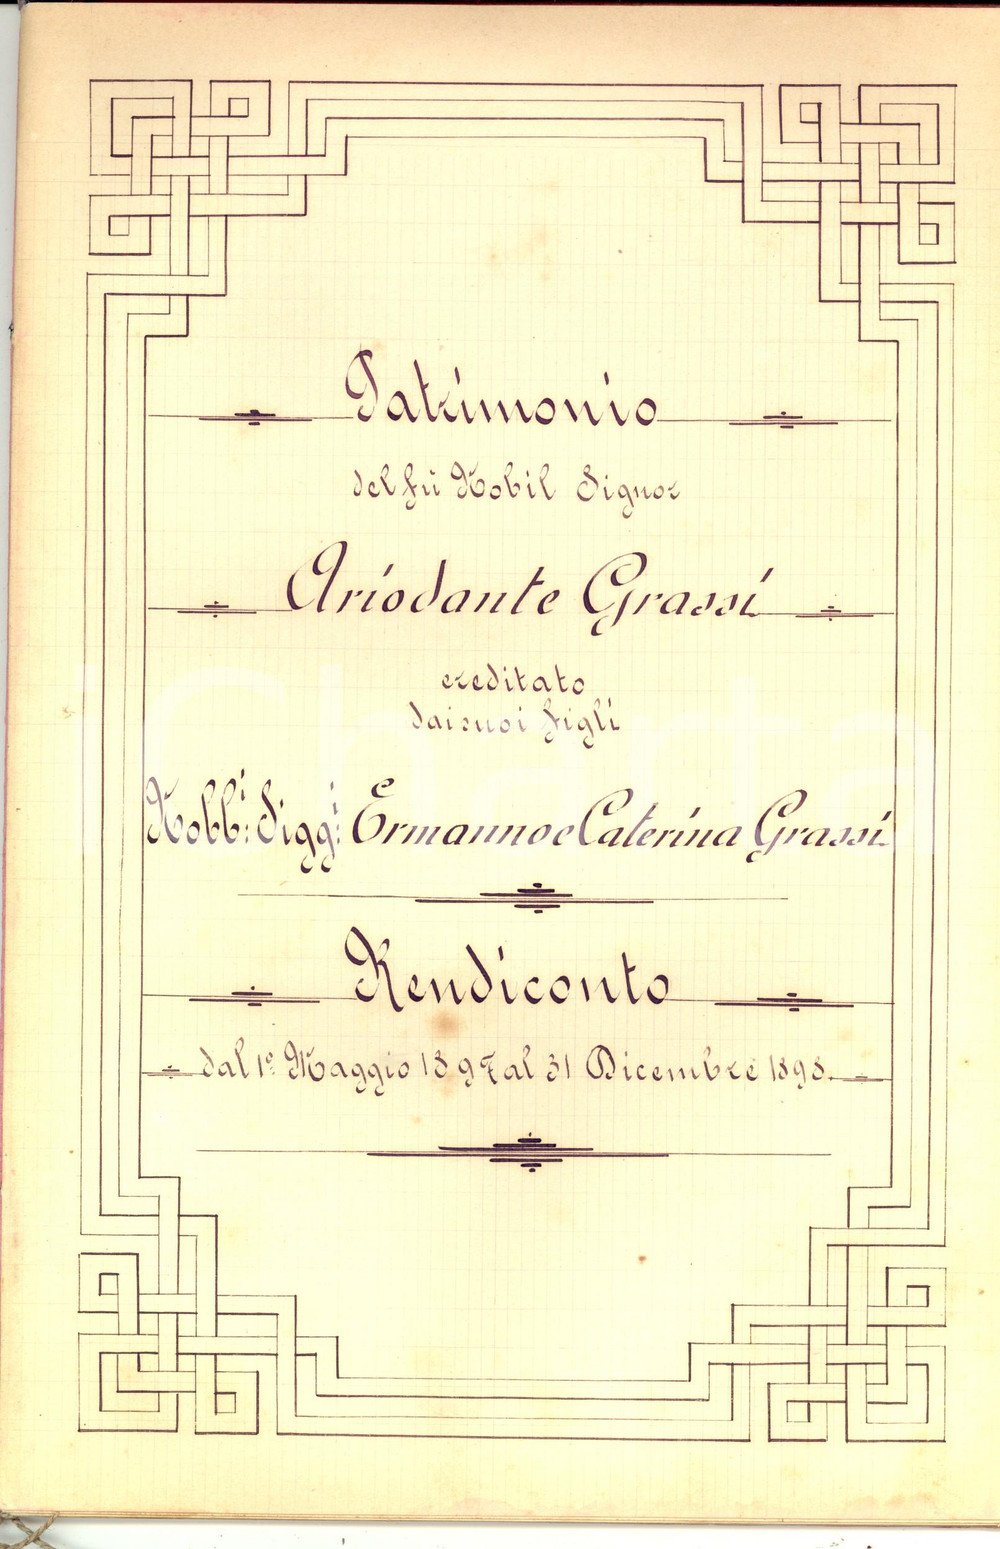 Patrimonio
del fù Nobil Signor
Ariodante Grassi
ereditato
dai suoi figli
Nobb.i: Sigg.i: Ermanno e Caterina Grassi.
Rendiconto
dal 1º Maggio 1897 al 31 Dicembre 1898.